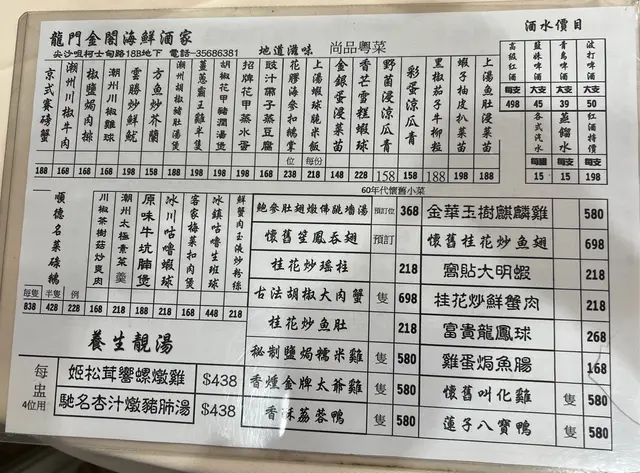 龍門金閣海鮮酒家
尖沙咀柯士甸路18B地下 電話-35686381
地道滋味 尚品粵菜
京式賽螃蟹 188
潮州川椒牛肉 168
椒鹽焗肉排 168
潮州川椒雞球 168
雲腿炒鮮魷 198
方魚炒芥蘭 158
潮州胡椒豬肚湯煲
薑蔥霸王雞半隻
胡椒花甲豬潤湯煲
招牌花甲蒸水蛋 168
豉汁帶子蒸豆腐 168
花膠海參扣鵝掌 位 238
上湯蝦球脆米飯 每份 218
金銀蛋浸菜苗 148
香芒雪糕蝦球 148
野菌浸涼瓜青 158
彩蛋涼瓜青 158
黑椒茄子牛柳粒 188
蝦子柚皮扒菜苗 198
上湯魚肚浸菜苗 188
酒水價目
高級紅酒 每支 498
藍妹啤酒 大支 45
青島啤酒 大支 39
波打啤酒 大支 50
各式汽水 每罐 15
蒸餾水 每支 15
紅酒特價 每支 198
順德名菜碌鵝
每隻 838
半隻 428
例 228
川椒茶樹菇炒爽肉 168
潮州太極素菜羹 218
原味牛坑腩煲 188
冰川咕嚕蝦球 218
客家梅菜扣肉煲 168
冰鎮咕嚕生班球 448
鮮蟹肉玉液炒粉絲 218
60年代懷舊小菜
鮑參肚翅燉佛跳墻湯 預訂位 368
懷舊笙鳳吞翅 預訂
桂花炒瑤柱 218
古法胡椒大肉蟹 隻 698
桂花炒魚肚 218
秘制鹽焗糯米雞 隻 580
香燻金牌太爺雞 隻 580
香酥荔蓉鴨 隻 580
金華玉樹麒麟雞 580
懷舊桂花炒魚翅 698
窩貼大明蝦 218
桂花炒鮮蟹肉 218
富貴龍鳳球 268
雞蛋焗魚腸 168
懷舊叫化雞 隻 580
蓮子八寶鴨 隻 580
養生靚湯
每盅
4位用
姬松茸響螺燉雞 $438
馳名杏汁燉豬肺湯 $438